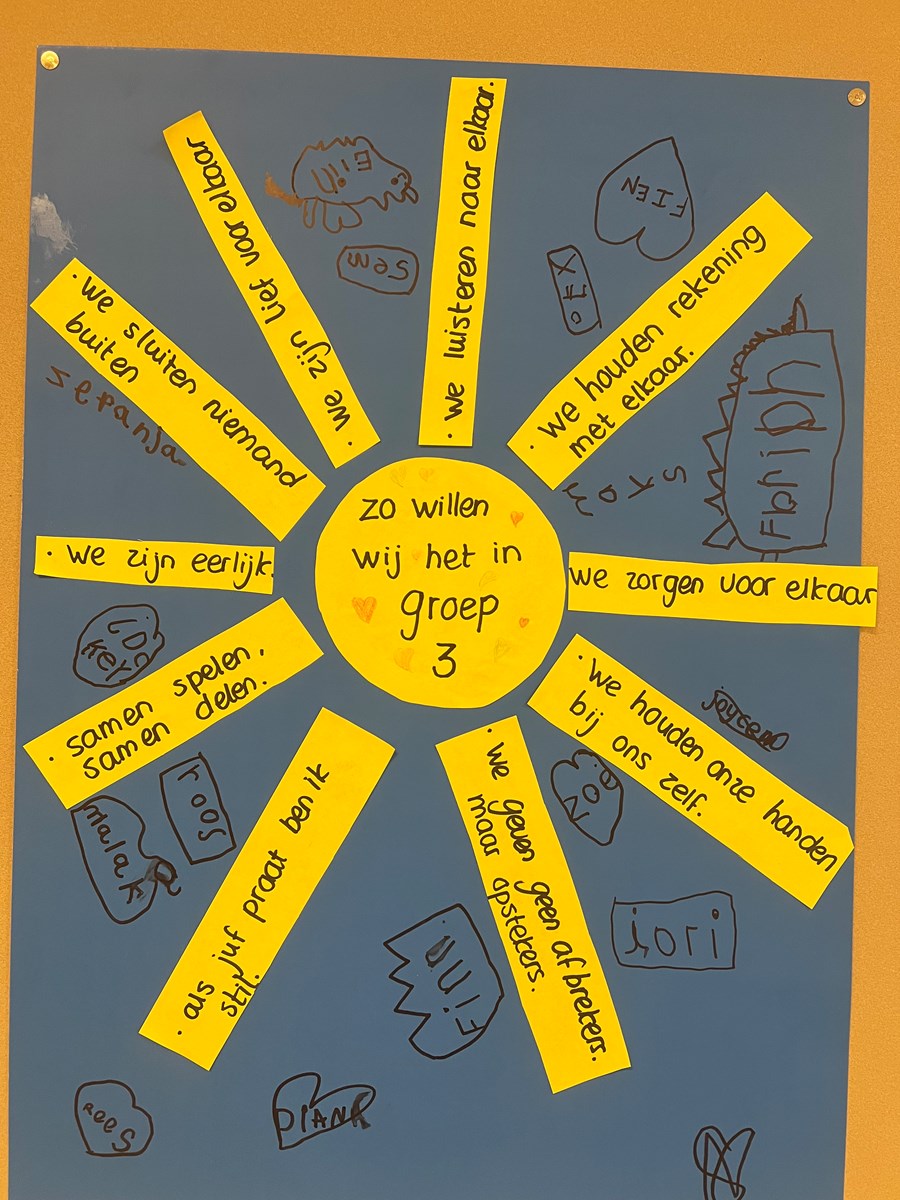 zo willen
wij het in
groep
3
· we luisteren naar elkaar.
· we houden rekening
met elkaar.
we zorgen voor elkaar
· we houden onze handen
bij ons zelf.
· we geven geen afbrekers.
maar opstekers.
· als juf praat ben ik
stil.
· samen spelen,
samen delen.
· we zijn eerlijk.
· we sluiten niemand
buiten
· we zijn lief voor elkaar
Sem
FIEN
sepanja
roos
malak
jori
Finn
DIANA
Rees